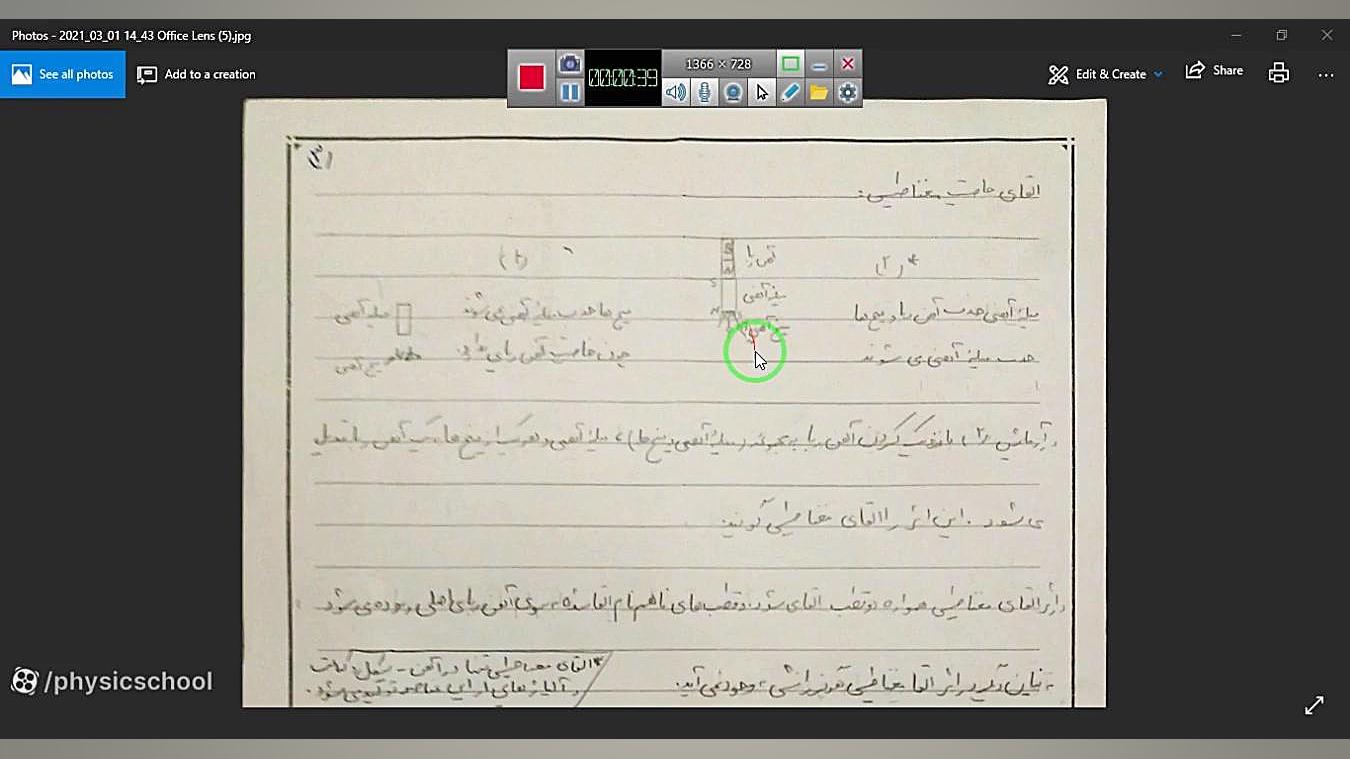 Photos - 2021_03_01 14_43 Office Lens (5).jpg
See all photos
Add to a creation
00:00:39
1366 × 728
Edit & Create
Share
القای خاصیت مغناطیسی:
* (۲)
آهن ربا
S
N
میله آهنی
میخ آهنی
(۱)
میله آهنی جذب آهن ربا و میخ ها
جذب میله آهنی می شوند
میخ ها جذب میله آهنی نمی شوند
چون خاصیت آهن ربایی ندارد.
میله آهنی
میخ آهنی
در آزمایش (۲) با نزدیک کردن آهن ربا به مجموعه (میله آهنی و میخ ها)، میله آهنی و هر یک از میخ ها به یک آهن ربا تبدیل
می شود. این اثر را القای مغناطیسی گویند.
در اثر القای مغناطیسی همواره دو قطب القا می شود. قطب های ناهمنام القا شده به سوی آهن ربای اصلی ربوده می شود
بنابراین در اثر القا مغناطیسی هرگز رانشی بوجود نمی آید.
* القای مغناطیسی تنها در آهن - نیکل - کبالت
و آلیاژهای دارای این عناصر
/physicschool